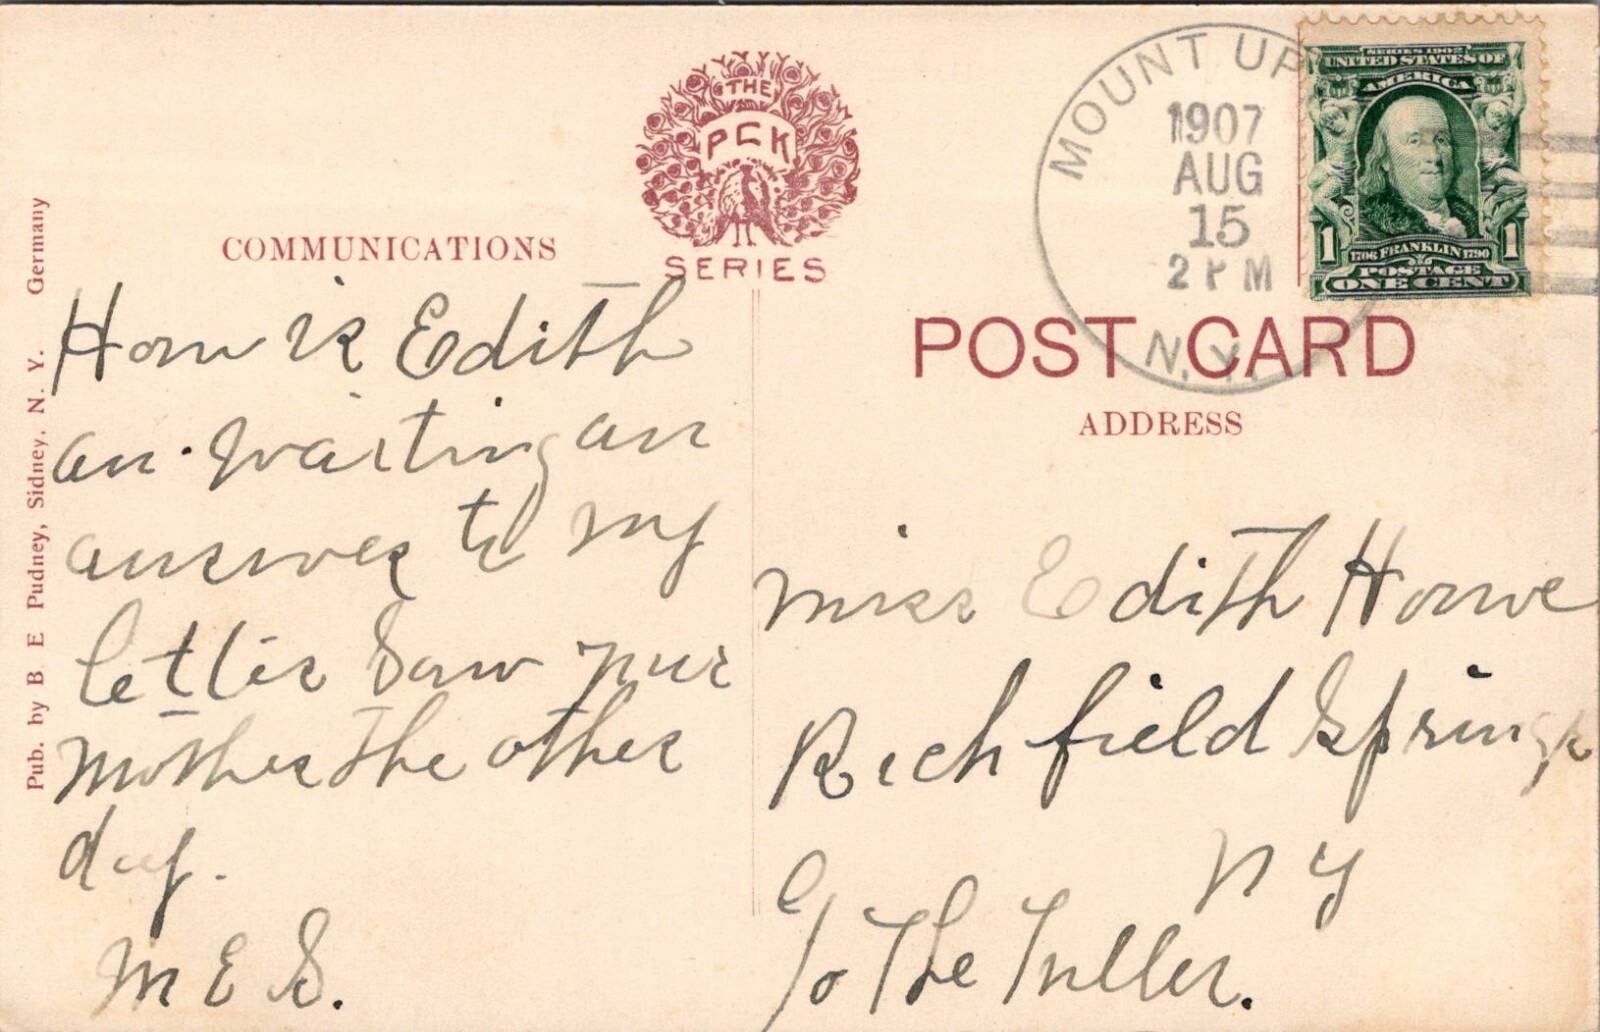 THE
PCK
SERIES
COMMUNICATIONS
How is Edith
am waiting an
answer to my
letter Saw your
mother the other
day.
M E S.
Pub. by B E Pudney, Sidney, N. Y. Germany
MOUNT UP
1907
AUG
15
2 P M
N. Y.
SERIES 1902
UNITED STATES OF
AMERICA
1 1706 FRANKLIN 1790 1
POSTAGE
ONE CENT
POST CARD
ADDRESS
Miss Edith Howe
Richfield Springs
N Y
C/o The Tuller.